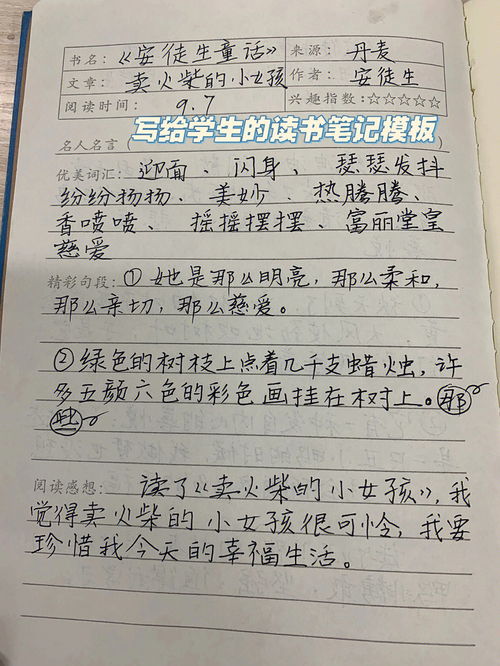 书名：《安徒生童话》 来源：丹麦
文章：卖火柴的小女孩 作者：安徒生
阅读时间：9.7 兴趣指数：☆☆☆☆☆
写给学生的读书笔记模板
名人名言（
优美词汇：迎面、闪身、瑟瑟发抖
纷纷扬扬、美妙、热腾腾、
香喷喷、摇摇摆摆、富丽堂皇
慈爱
精彩句段：①她是那么明亮，那么柔和，
那么亲切，那么慈爱。
②绿色的树枝上点着几千支蜡烛，许
多五颜六色的彩色画挂在树上。
阅读感想：读了《卖火柴的小女孩》，我
觉得卖火柴的小女孩很可怜，我要
珍惜我今天的幸福生活。